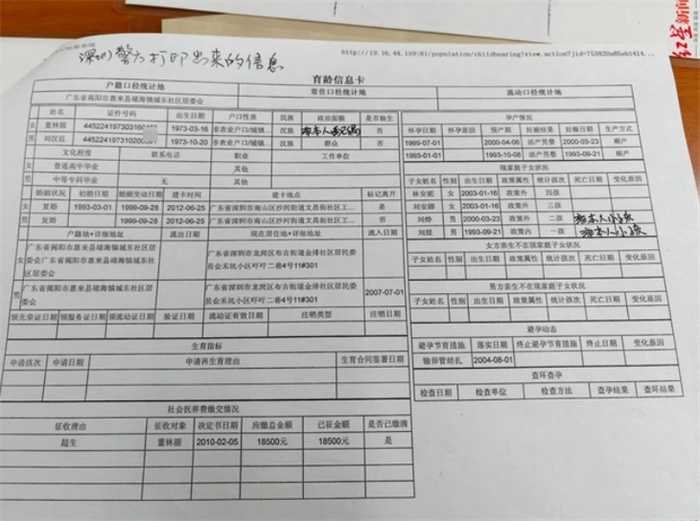 红星新闻
http://19.16.44.159:81/population/childbearing?view.action?jid=
深圳警方打印出来的信息
育龄信息卡
户籍口径统计地 常住口径统计地 流动口径统计地
广东省揭阳市惠来县靖海镇城东社区居委会
姓名 证件号码 出生日期 户口性质 民族 政治面貌 是否独生
女 董林丽 1973-03-16 非农业户口/城镇 汉族 否
男 1973-10-20 非农业户口/城镇 汉族 群众 否
文化程度 联系电话 职业 工作单位
女 普通高中毕业 其他
男 中等专科毕业 其他
婚姻状况 初婚日期 婚姻变动日期 建卡时间 建卡地点 标记离开
女 复婚 1993-03-01 1999-09-28 2012-06-25 广东省深圳市南山区沙河街道文昌街社区工... 是
男 复婚 1999-09-28 2012-06-25 广东省深圳市南山区沙河街道文昌街社区工... 否
户籍地+详细地址 流出日期 现在居住地+详细地址 流入日期
女 广东省揭阳市惠来县靖海镇城东社区居委会广东省揭阳市惠来县靖海镇城东社区居委会 广东省深圳市龙岗区布吉街道金排社区居民委员会禾坑小区吓吓二巷4号11#301
男 广东省揭阳市惠来县靖海镇城东社区居委会 广东省深圳市龙岗区布吉街道金排社区居民委员会禾坑小区吓吓二巷4号11#301 2007-07-01
领光荣证日期 领服务证日期 领流动证日期 验证日期 流动证有效日期 注销类型 注销日期
生育指标
申请孩次 申请日期 申请再生育理由 生育合同签署日期
社会抚养费缴交情况
征收理由 征收对象 决定书日期 应缴总金额 已征金额 是否已缴清
超生 董林丽 2010-02-05 18500元 18500元 是
孕产情况
怀孕日期 怀孕原因 预产期 妊娠结果 妊娠日期 生产方式
1999-07-01 2000-04-06 活产男婴 2000-03-23 顺产
1993-01-01 1993-10-08 活产男婴 1993-09-21 顺产
现家庭子女状况
子女姓名 性别 出生日期 政策属性 统计孩次 死亡日期 变化原因
林安妮 女 2003-01-16 政策外 四孩
刘安娜 女 2003-01-16 政策外 三孩
刘烨 男 2000-03-23 政策外 二孩 本人小孩
刘煜 男 1993-09-21 政策内 一孩 本人小孩
女方亲生不在现家庭子女状况
子女姓名 性别 出生日期 政策属性 统计孩次 死亡日期 变化原因
男方亲生不在现家庭子女状况
子女姓名 性别 出生日期 政策属性 统计孩次 死亡日期 变化原因
避孕动态
避孕节育措施 落实日期 终止避孕节育措施 终止日期 变化原因
输卵管结扎 2004-08-01
查环查孕
检查日期 检查单位 检查方法 查孕结果 查环结果